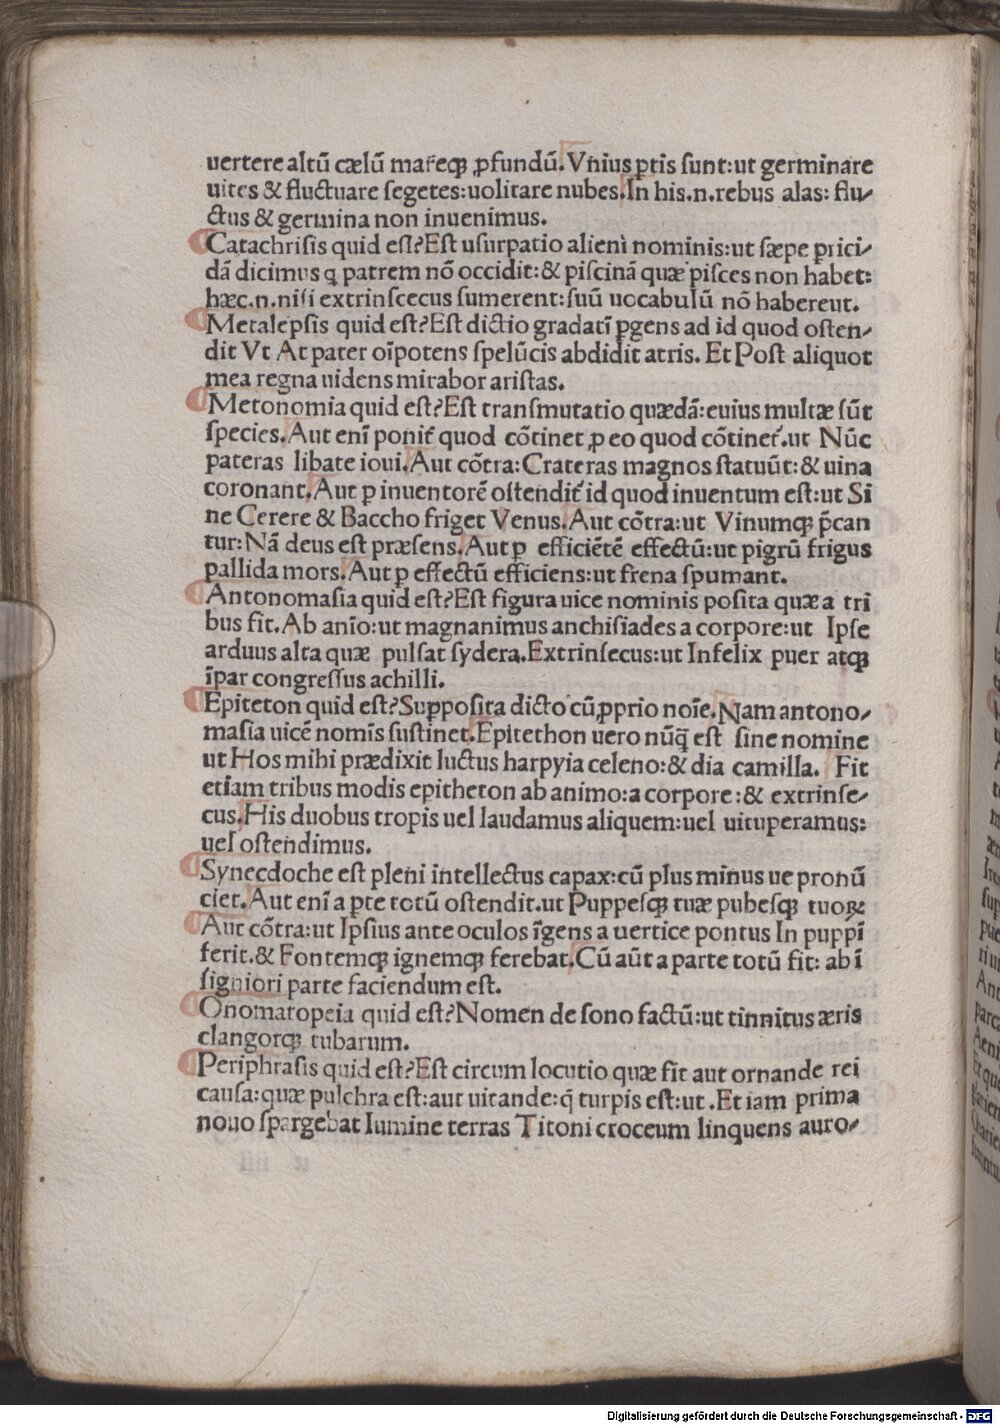 uertere altū cælū mareq; ꝓfundū. Vnius ꝑtis sunt:ut germinare
uites & fluctuare segetes:uolitare nubes.In his.n.rebus alas: flu⸗
ctus & germina non inuenimus.
Catachrisis quid est?Est usurpatio alieni nominis:ut sæpe ꝑrici⸗
dā dicimus ꝗ patrem nō occidit:& piscinā quæ pisces non habet:
hæc.n.nisi extrinscecus sumerent:suū uocabulū nō habereut.
Metalepsis quid est?Est dictio gradatī ꝑgens ad id quod osten⸗
dit Vt At pater oīpotens spelūcis abdidit atris. Et Post aliquot
mea regna uidens mirabor aristas.
Metonomia quid est?Est transmutatio quædā:euius multæ sūt
species.Aut enī ponit᷑ quod cōtinet ꝓ eo quod cōtinet᷑.ut Nūc
pateras libate ioui.Aut cōtra:Crateras magnos statuūt:& uina
coronant.Aut ꝑ inuentorē ostendit᷑ id quod inuentum est:ut Si
ne Cerere & Baccho friget Venus.Aut cōtra:ut Vinumq; p̄can
tur:Nā deus est præsens.Aut ꝑ efficiētē effectū:ut pigrū frigus
pallida mors.Aut ꝑ effectū efficiens:ut frena spumant.
Antonomasia quid est?Est figura uice nominis posita quæ a tri
bus fit.Ab anīo:ut magnanimus anchisiades a corpore:ut Ipse
arduus alta quæ pulsat sydera.Extrinsecus:ut Infelix puer atq;
īpar congressus achilli.
Epiteton quid est?Supposita dicto cū ꝓprio noīe.Nam antono⸗
masia uicē nomīs sustinet.Epitethon uero nūq̄ est sine nomine
ut Hos mihi prædixit luctus harpyia celeno:& dia camilla. Fit
etiam tribus modis epitheton ab animo:a corpore:& extrinse⸗
cus.His duobus tropis uel laudamus aliquem:uel uituperamus:
uel ostendimus.
Synecdoche est pleni intellectus capax:cū plus minus ue pronū
ciet.Aut enī a ꝑte totū ostendit.ut Puppesq; tuæ pubesq; tuoꝝ
Aut cōtra:ut Ipsius ante oculos īgens a uertice pontus In puppī
ferit.& Fontemq; ignemq; ferebat.Cū aūt a parte totū fit: ab ī
signiori parte faciendum est.
Onomatopeia quid est?Nomen de sono factū:ut tinnitus æris
clangorq; tubarum.
Periphrasis quid est?Est circum locutio quæ fit aut ornande rei
causa:quæ pulchra est:aut uitande:q̄ turpis est:ut .Et iam prima
nouo spargebat lumine terras Titoni croceum linquens auro⸗
Digitalisierung gefördert durch die Deutsche Forschungsgemeinschaft - DFG